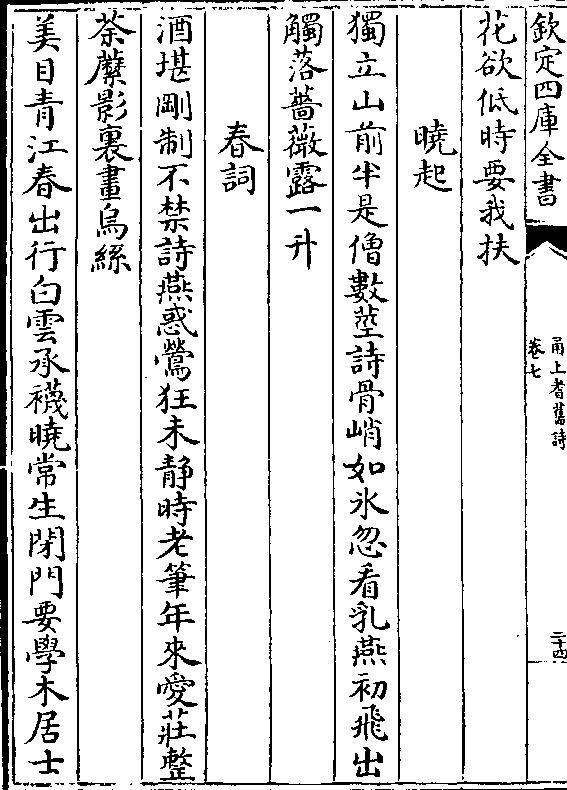 欽定四庫全書
甬上耆舊詩
卷七
二十四
花欲低時要我扶
曉起
獨立山前半是僧數莖詩骨峭如氷忽看乳燕初飛出
觸落薔薇露一升
春詞
酒堪剛制不禁詩燕惑鶯狂未静時老筆年來愛莊整
荼䕷影裏畫烏絲
美目青江春出行白雲承襪曉常生閉門要學木居士